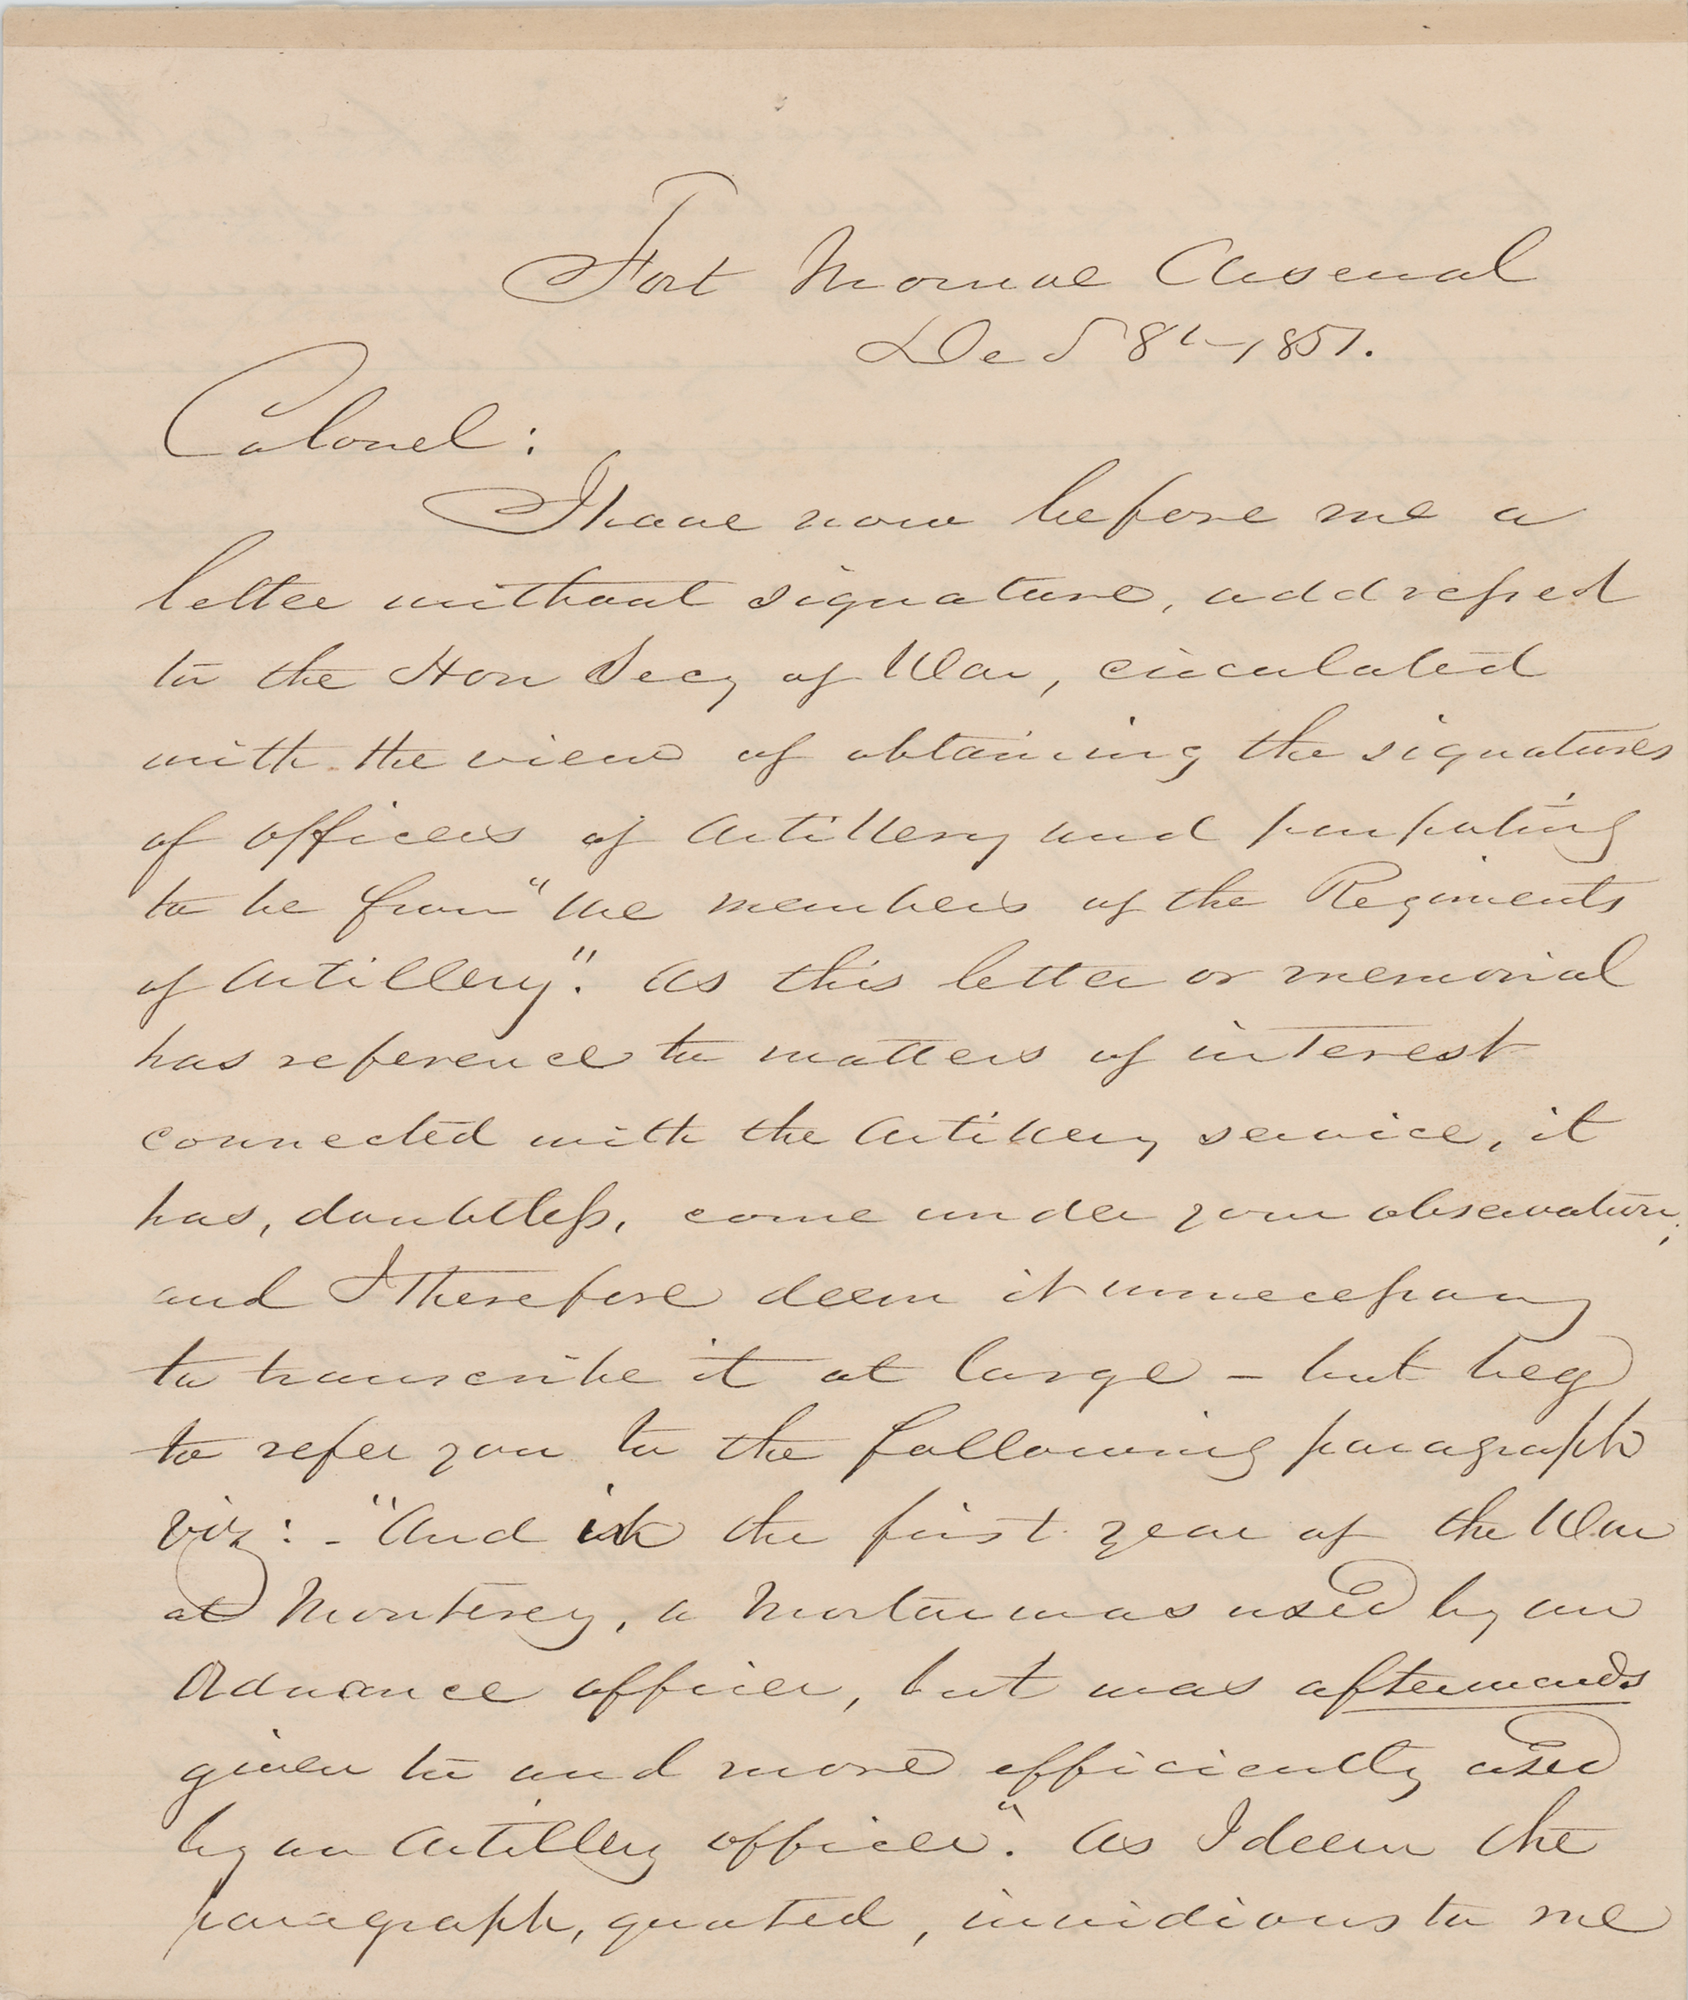 Fort Monroe Arsenal
Dec 8th 1851.
Colonel:
I have now before me a
letter without signature, addressed
to the Hon Secy of War, circulated
with the view of obtaining the signatures
of officers of Artillery and purporting
to be from "the members of the Regiments
of Artillery". As this letter or memorial
has reference to matters of interest
connected with the Artillery service, it
has, doubtless, come under your observation;
and I therefore deem it unnecessary
to transcribe it at large – but beg
to refer you to the following paragraph
viz: - "And in the first year of the War
at Monterey, a Mortar was used by an
Ordnance officer, but was afterwards
given to and more efficiently used
by an Artillery officer". As I deem the
paragraph, quoted, invidious to me